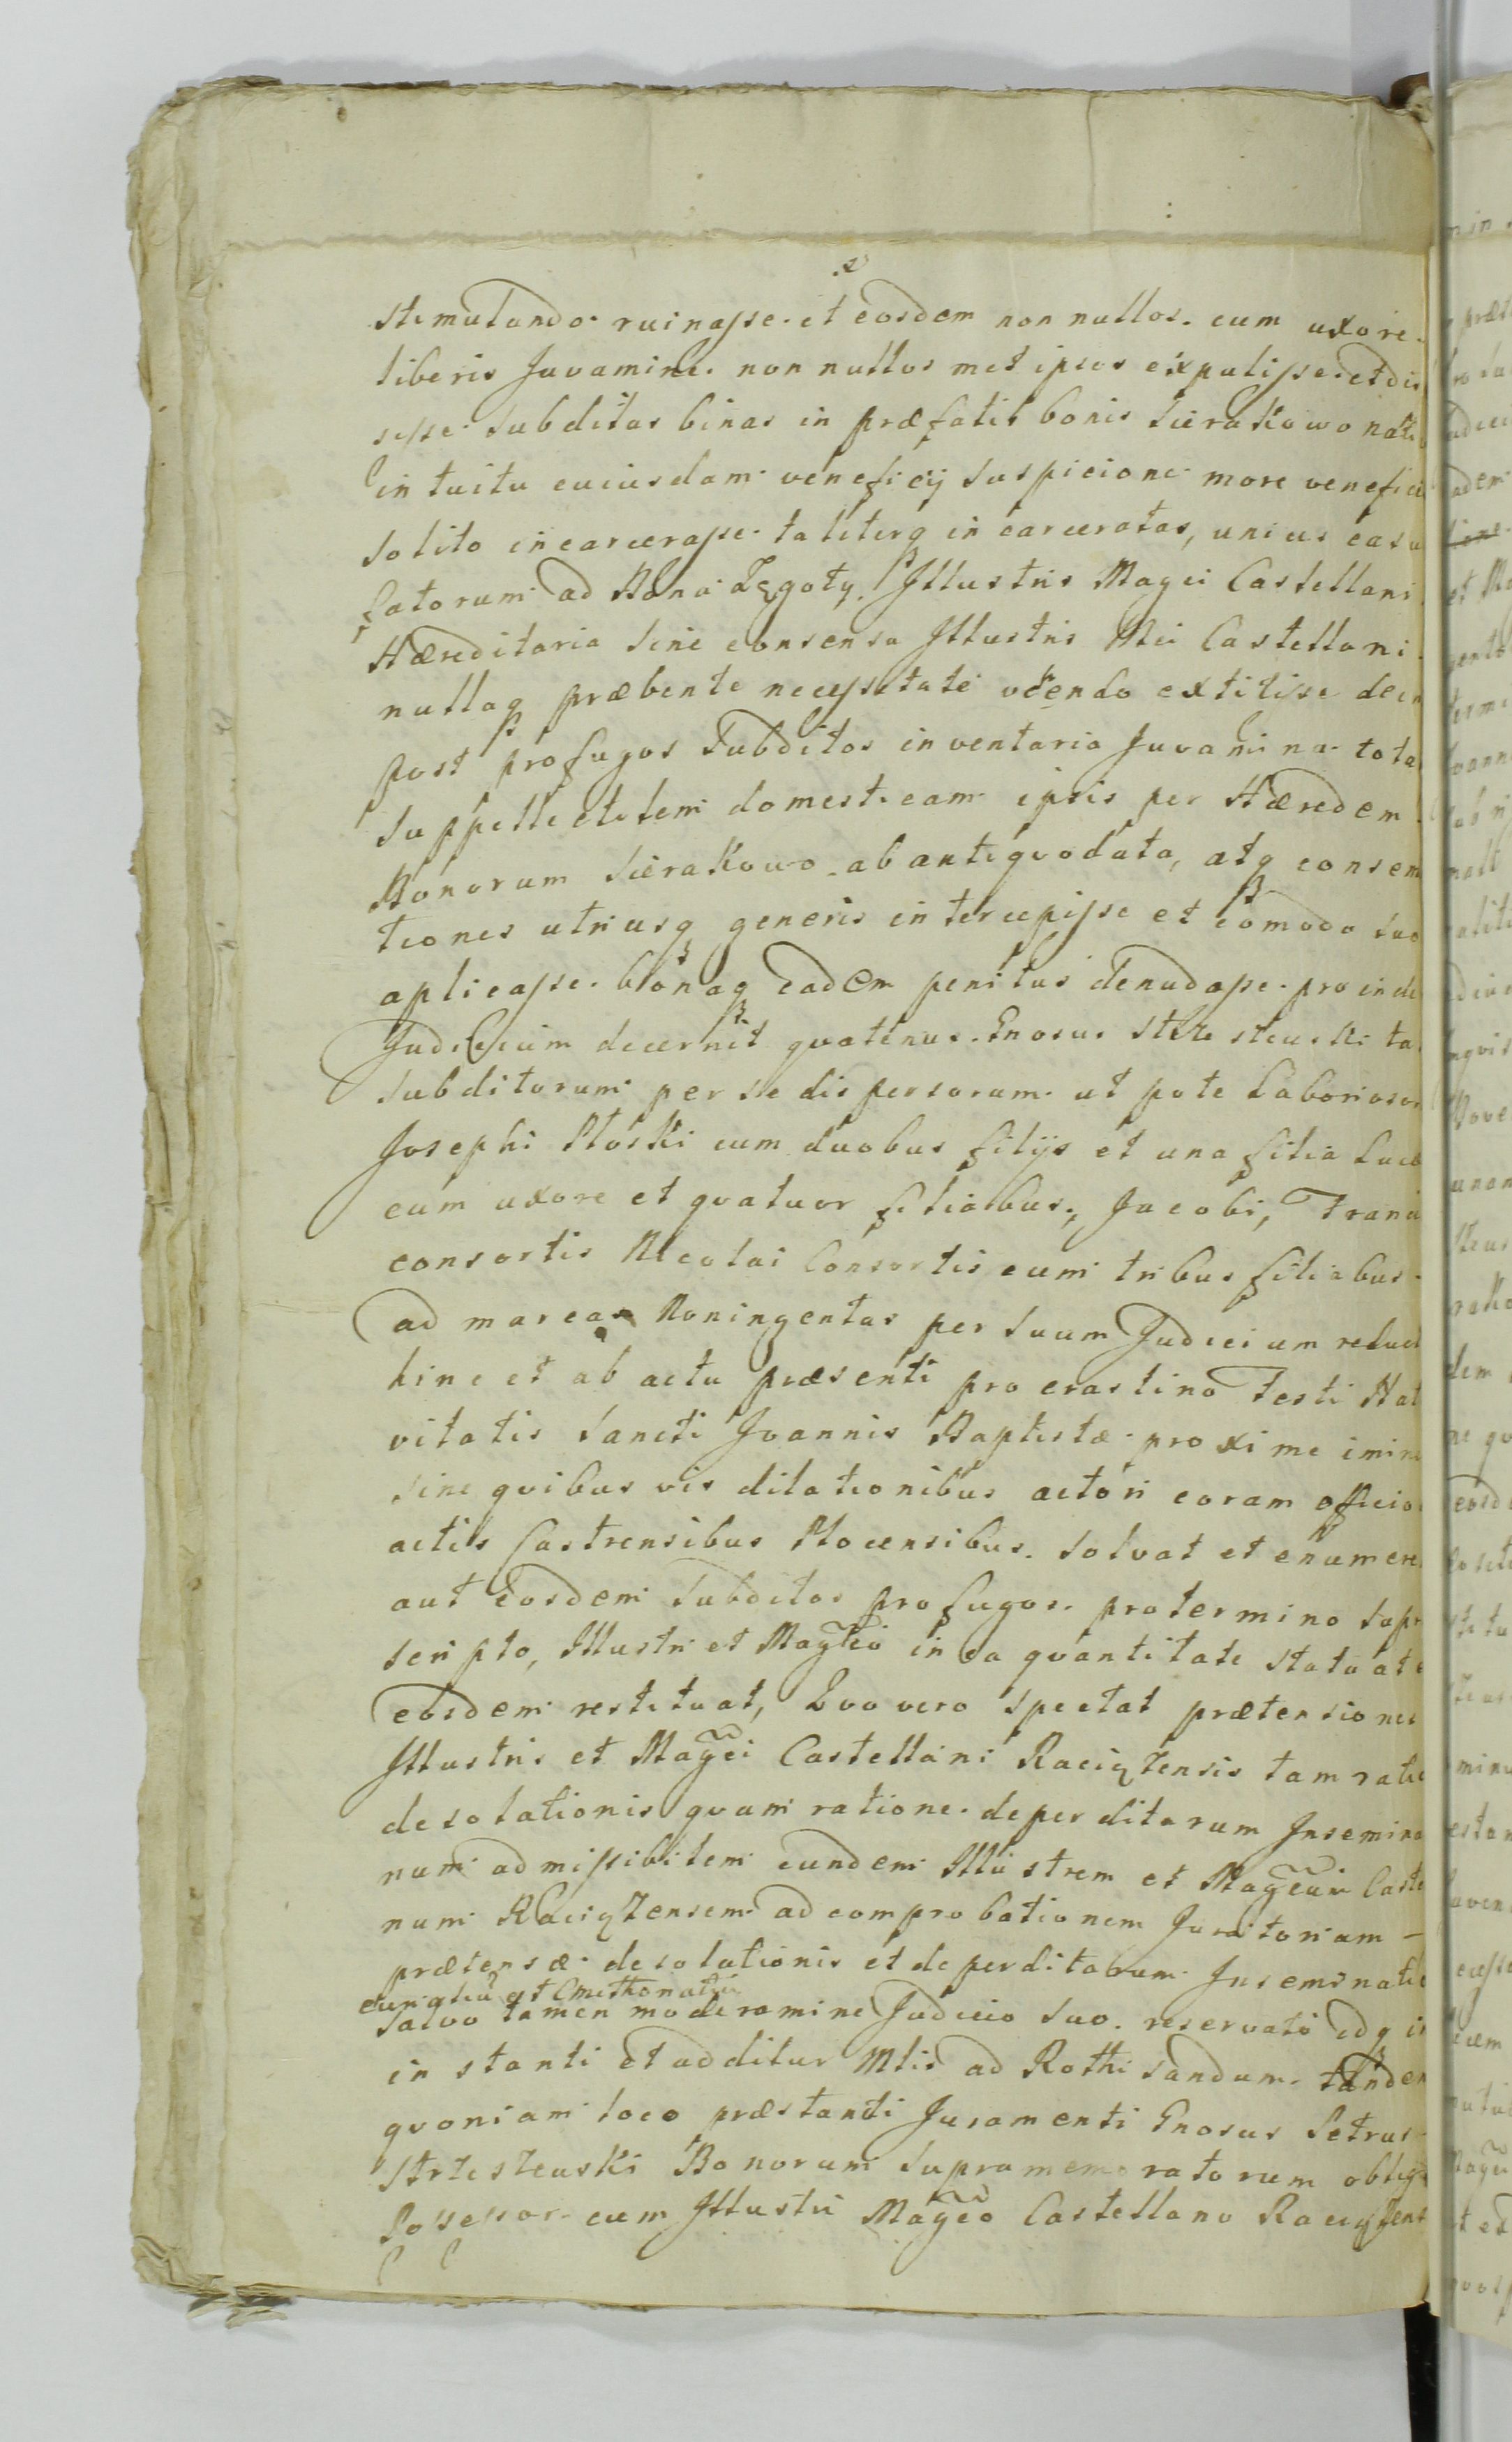 stimulando ruinasse et eosdem non nullos cum uxore
liberis Juvamine non nullos met ipsos expulisse et dis
sisse subditas binas in præfatis bonis Sierakowo
in tuitu cuiusdam veneficij suspicione more venefic
solito incarcerasse taliterq incarceratas, unius casu
fatorum ad Bona Łęgoty Illustris Magci Castellani
Hæreditaria sine consensu Illustris Mci Castellani
nullaq præbente necessitate extitisse
post profugos Subditos inventaria Juvamina tota
Suppellectilem domesticam ipsis per Hæredem
Bonorum Sierakowo ab antiquo data, atq consem
tiones utriusq generis intercepisse et comodo suo
aplicasse bonaq eadem penitus denudasse proinde
Judicium decernit quatenus Gnosus
subditorum per se dispersorum ut pote Laborioso
Josephi Ploski cum duobus filijs et una filia Luc
cum uxore et quatuor filiabus, Jacobi, Franci
consortis Nicolai Consortis cum tribus filiabus
ad marcas Noningentas per suum Judicium reduct
hinc et ab actu præsenti pro crastino Festi Nat
vitatis Sancti Joannis Baptistæ proxime imine
sine quibus vis dilationibus actori coram officio
actis Castrensibus Plocensibus solvat et enumere
aut eosdem subditos profugos pro termino supr
scripto, Illustri et Magco in ea quantitate statuat e
eosdem restituat, Quo vero spectat prætensiones
Illustris et Magci Castellani Raciązensis tam ratio
desolationis quam ratione deperditarum Insemina
num admissibilem eundem Illustrem et Magcum Caste
num Raciązensem ad comprobationem Juratoriam —
prætensæ desolationis et deperditarum Inseminatio
et Cmethonatus
salvo tamen moderamine Judicio suo reservato idq in
in stanti et additur Mtis ad Rothisandum tanden
quoniam loco præstandi Juramenti Gnosus Petrus
Bonorum supramemoratorum oblig
Possessor cum Illustri Magco Castellano Raciązens